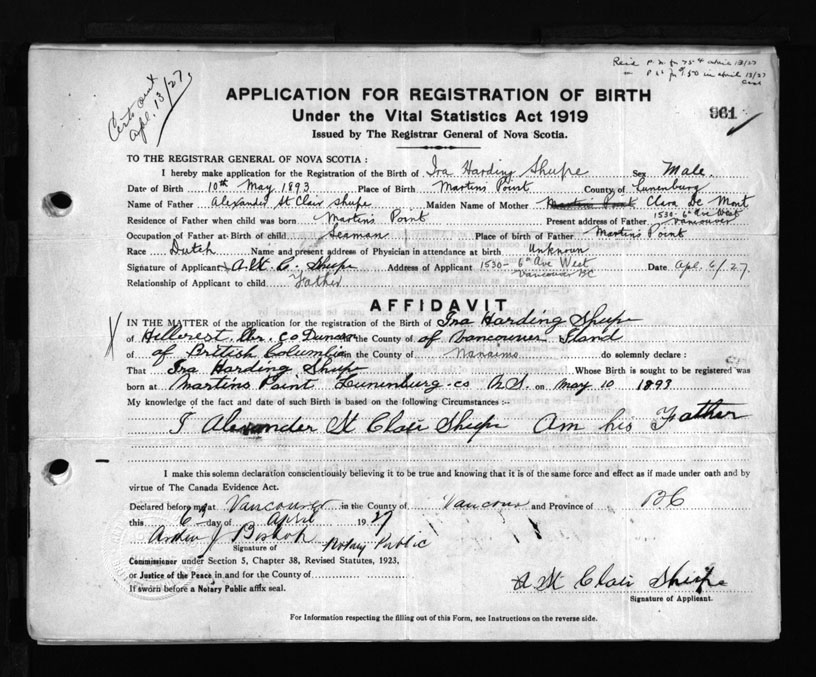 Certs out
Apl. 13/27
APPLICATION FOR REGISTRATION OF BIRTH
Under the Vital Statistics Act 1919
Issued by The Registrar General of Nova Scotia.
961
TO THE REGISTRAR GENERAL OF NOVA SCOTIA :
I hereby make application for the Registration of the Birth of Ira Harding Shupe Sex Male.
Date of Birth 10th May 1893 Place of Birth Martins Point County of Lunenburg
Name of Father Alexander St Clair Shupe Maiden Name of Mother Martins Point Clara De Mont
Residence of Father when child was born Martins Point Present address of Father 1530- 6th Ave West Vancouver
Occupation of Father at Birth of child Seaman Place of birth of Father Martins Point
Race Dutch Name and present address of Physician in attendance at birth Unknown
Signature of Applicant A. St. C. Shupe Address of Applicant 1530- 6th Ave West Vancouver BC Date Apl. 6/27.
Relationship of Applicant to child Father
AFFIDAVIT
IN THE MATTER of the application for the registration of the Birth of Ira Harding Shupe
of Hillcrest Co Duncan the County of of Vancouver Island
of of British Columbia in the County of Nanaimo do solemnly declare :
That Ira Harding Shupe Whose Birth is sought to be registered was
born at Martins Point Lunenburg. co N.S. on May 10 1893
My knowledge of the fact and date of such Birth is based on the following Circumstances :-
I Alexander St Clair Shupe Am his Father
I make this solemn declaration conscientiously believing it to be true and knowing that it is of the same force and effect as if made under oath and by
virtue of The Canada Evidence Act.
Declared before me at Vancouver in the County of Vancouver and Province of BC
this 6th day of April 1927
Bishop Notary Public
Signature of
Commissioner under Section 5, Chapter 38, Revised Statutes, 1923,
or Justice of the Peace in and for the County of
If sworn before a Notary Public affix seal.
A St Clair Shupe
Signature of Applicant.
For Information respecting the filling out of this Form, see Instructions on the reverse side.